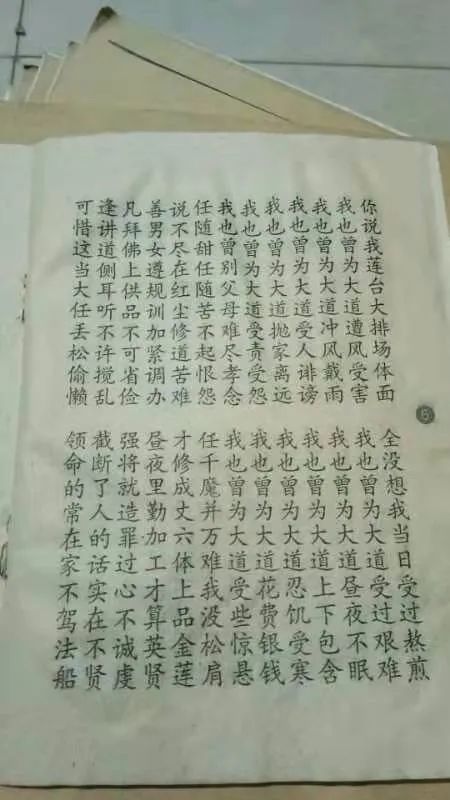 你说我莲台大排场体面
全没想我当日受过熬煎
我也曾为大道遭风受害
我也曾为大道受过艰难
我也曾为大道冲风戴雨
我也曾为大道昼夜不眠
我也曾为大道受人诽谤
我也曾为大道上下包含
我也曾为大道抛家离远
我也曾为大道忍饥受寒
我也曾为大道受责受怨
我也曾为大道花费银钱
我也曾别父母难尽孝念
我也曾为大道受些惊悬
任随甜任随苦不起恨怨
任千魔并万难我没松肩
说不尽在红尘修道苦难
才修成丈六体上品金莲
善男女遵规训加紧调办
昼夜里勤加工才算英贤
凡拜佛上供品不可省俭
强将就造罪过心不诚虔
逢讲道侧耳听不许搅乱
截断了人的话实在不贤
可惜这当大任丢松偷懒
领命的常在家不驾法船